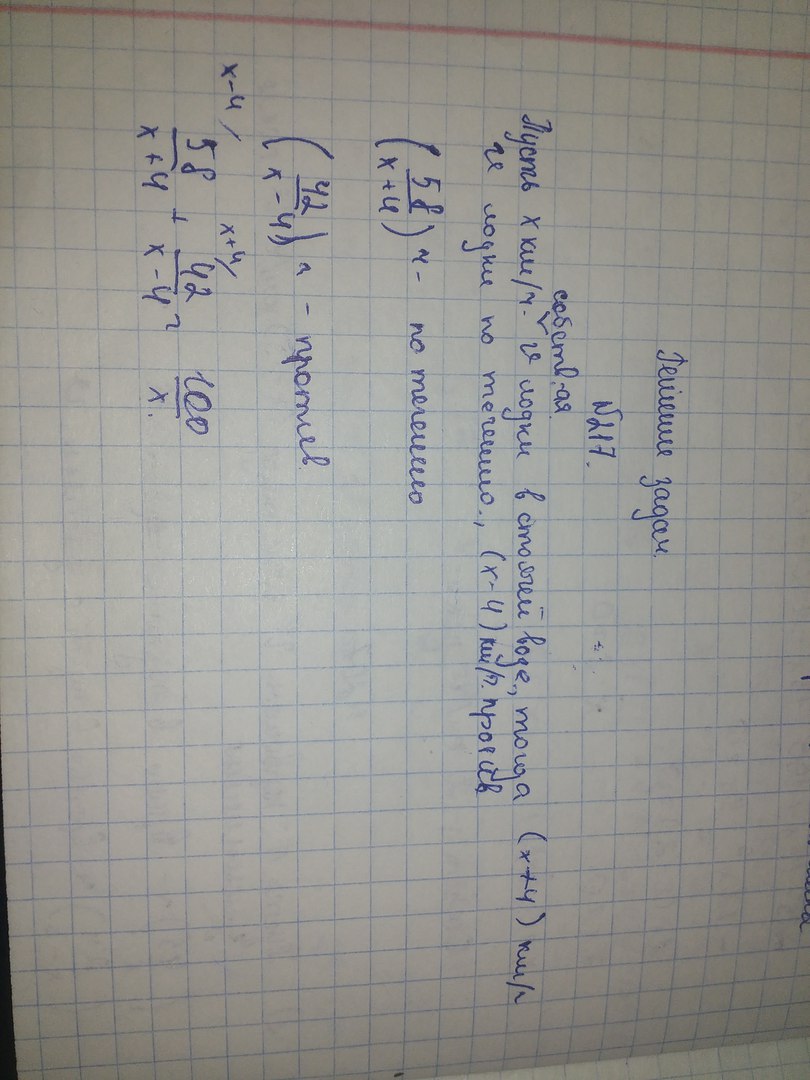 Решение задач.
N217.
собств.ая
Пусть x км/ч - v лодки в стоячей воде, тогда (x+4) км/ч
v лодки по течению, (x-4) км/ч. против
(58/x+4) ч - по течению
(42/x-4) ч - против
x-4/ x+4/
58/x+4 + 42/x-4 = 100/x.